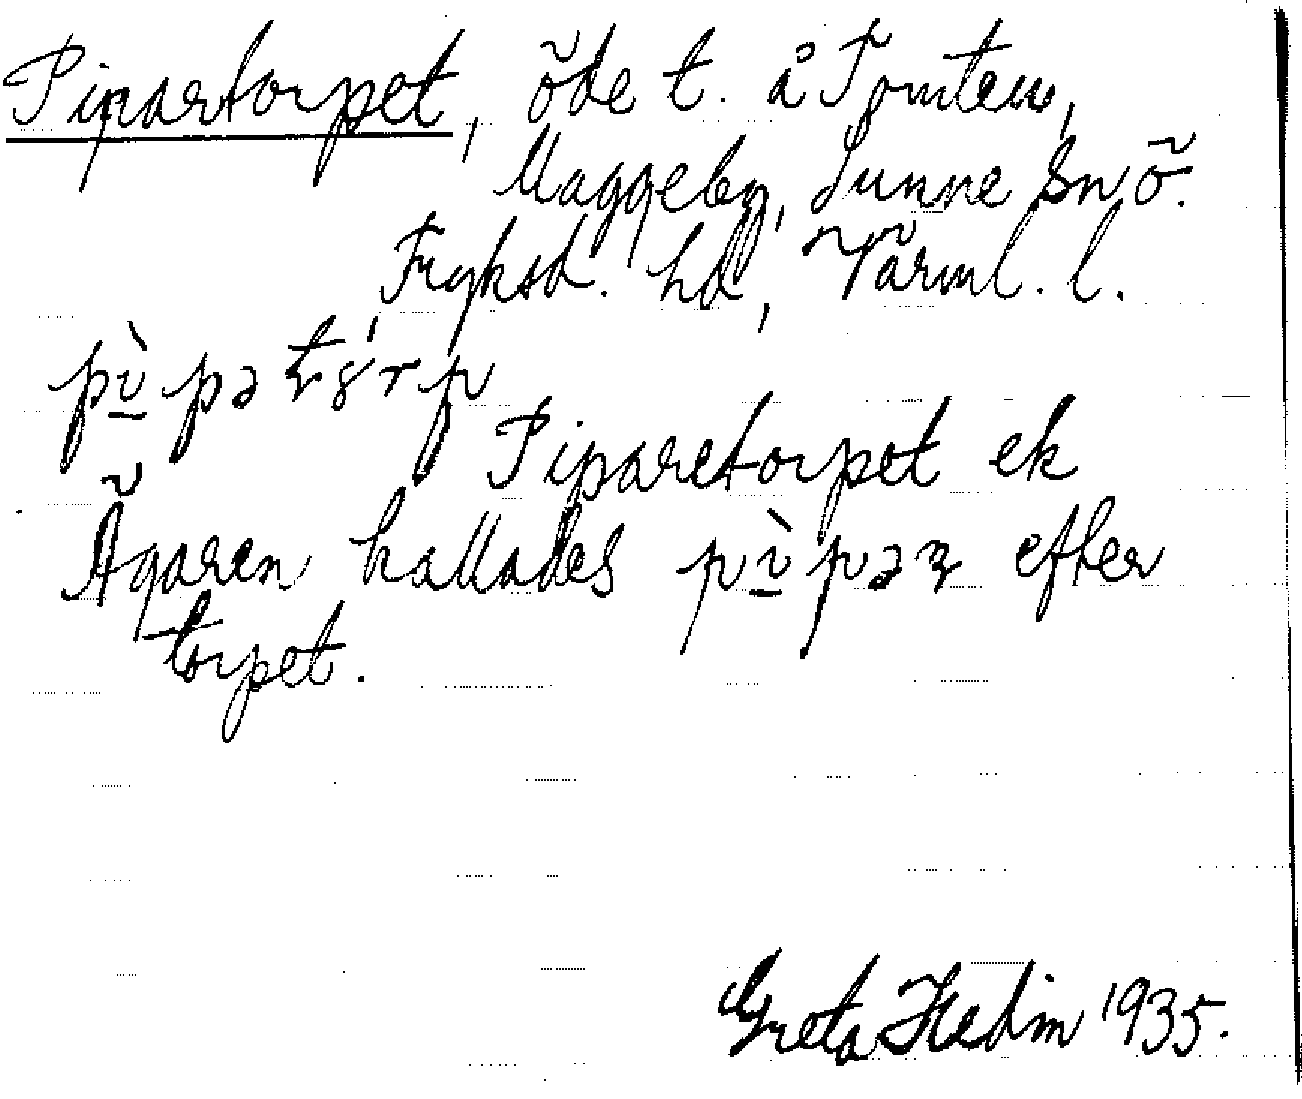 Pipartorpet, öde t. å Tomten,
Maggeby, Sunne sn ö.
Fryksd. hd, Värml. l.
pìpətórp
Piparetorpet ek
Ägaren kallades pìpər efter
torpet.
Greta Hedin 1935.